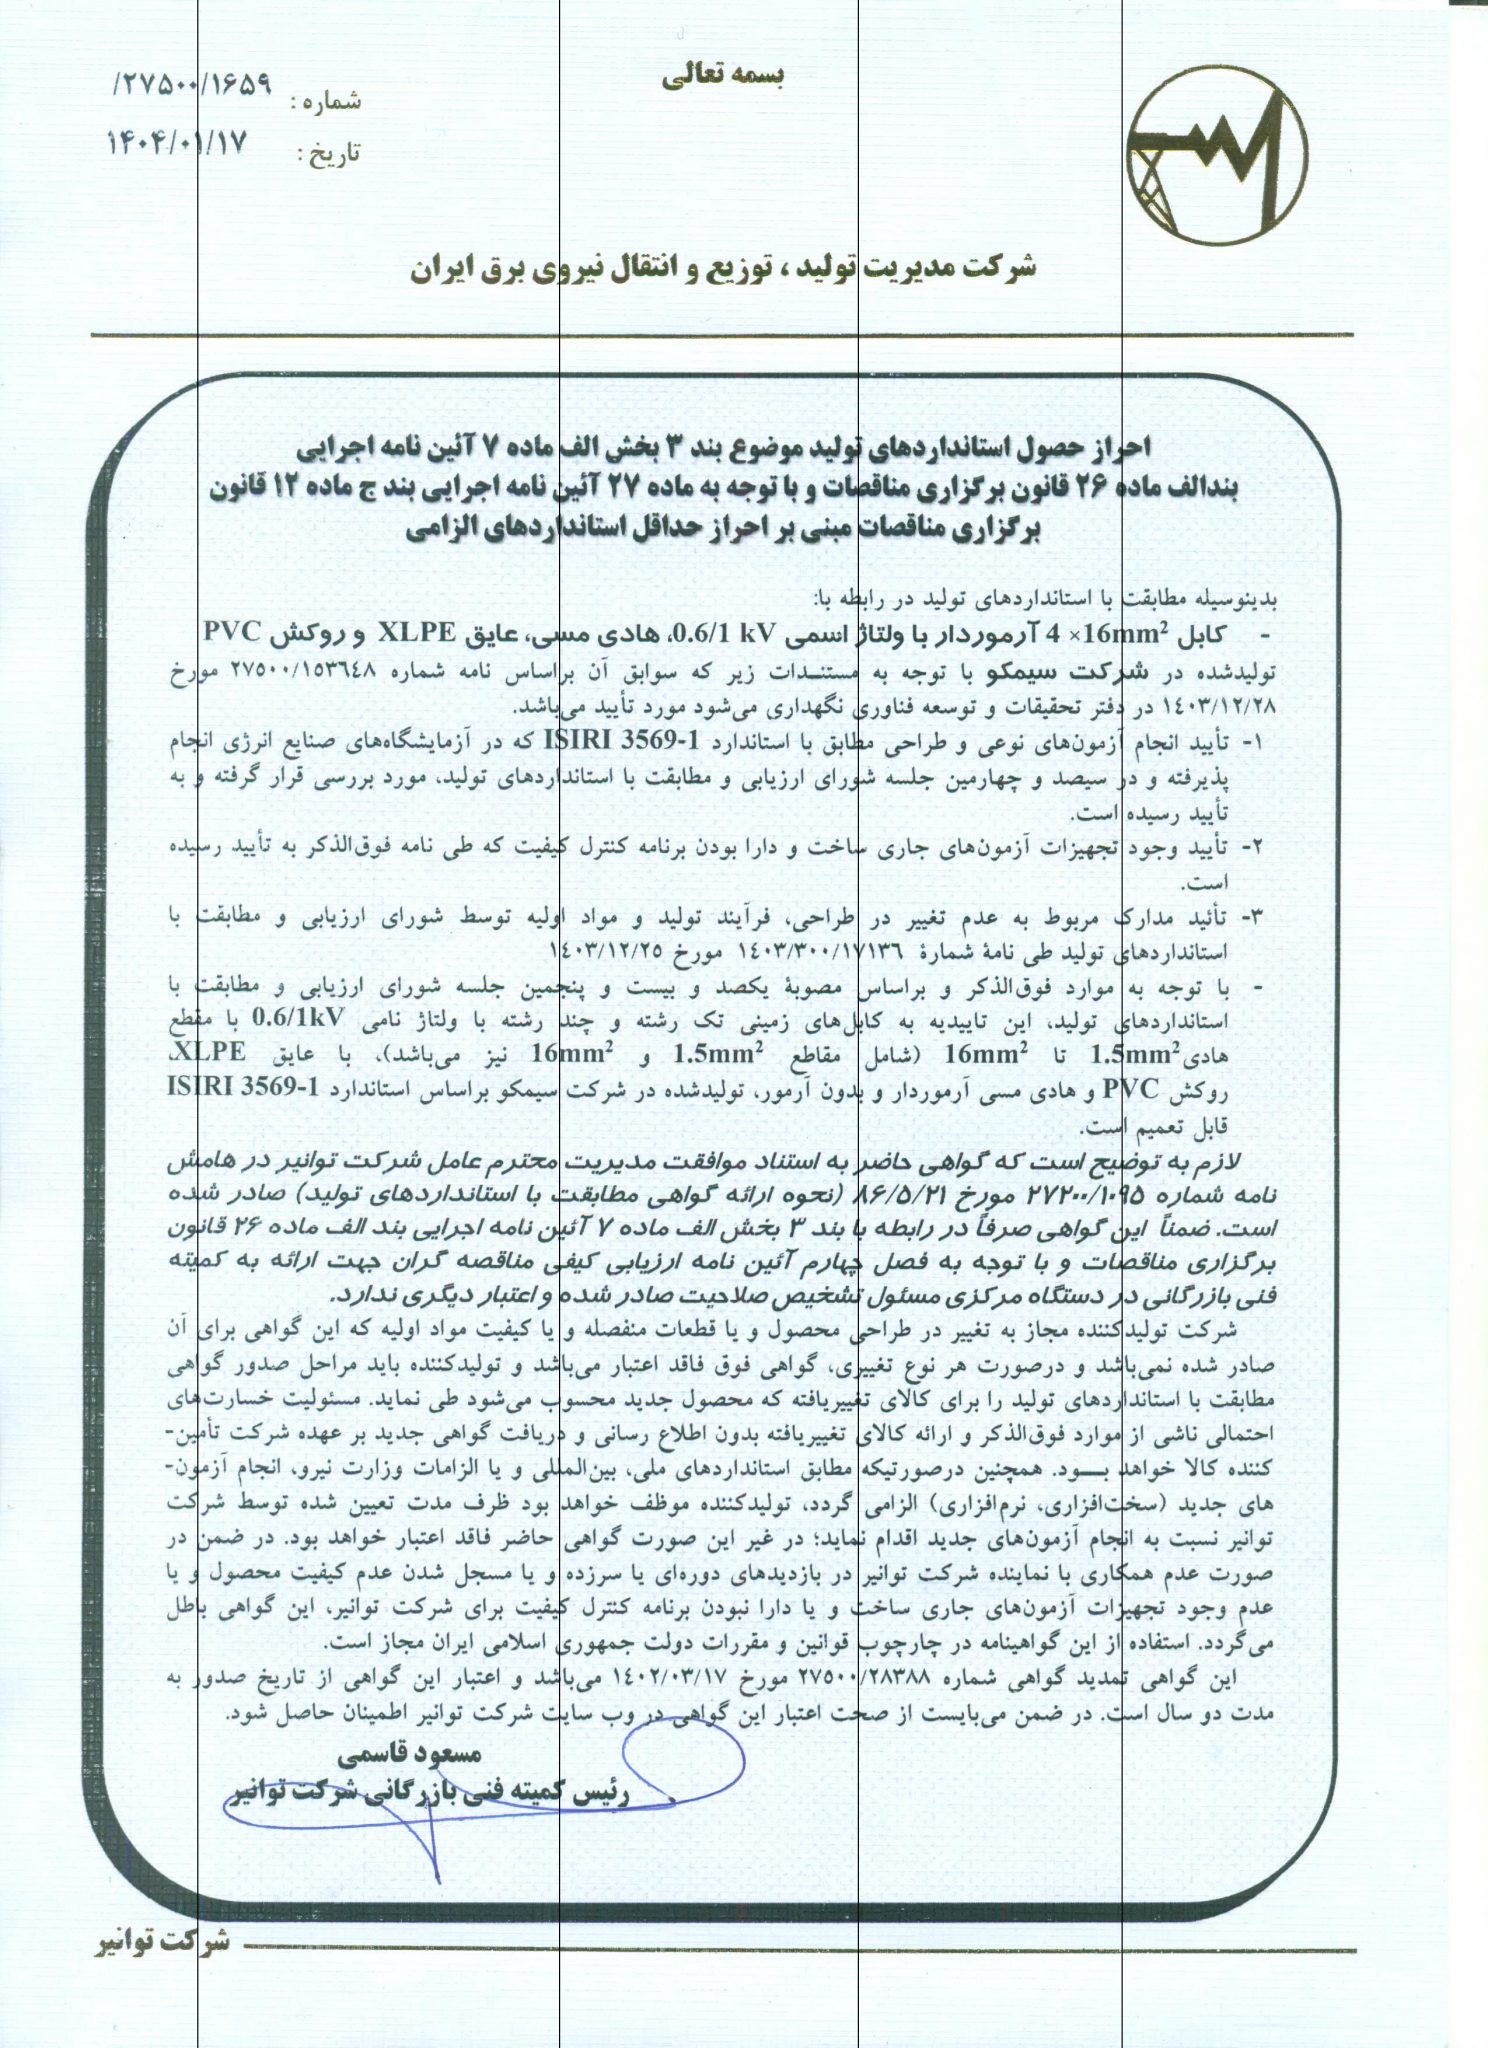 بسمه تعالی
شماره : ۲۷۵۰۰/۱۶۵۹/
تاریخ : ۱۴۰۴/۰۱/۱۷
شرکت مدیریت تولید ، توزیع و انتقال نیروی برق ایران
احراز حصول استانداردهای تولید موضوع بند ۳ بخش الف ماده ۷ آئین نامه اجرایی
بندالف ماده ۲۶ قانون برگزاری مناقصات و با توجه به ماده ۲۷ آئین نامه اجرایی بند ج ماده ۱۲ قانون
برگزاری مناقصات مبنی بر احراز حداقل استانداردهای الزامی
بدینوسیله مطابقت با استانداردهای تولید در رابطه با:
- کابل 4 ×16mm² آرموردار با ولتاژ اسمی 0.6/1 kV، هادی مسی، عایق XLPE و روکش PVC
تولیدشده در شرکت سیمکو با توجه به مستندات زیر که سوابق آن براساس نامه شماره ۲۷۵۰۰/۱۵۳٦٤۸ مورخ
۱٤۰۳/۱۲/۲۸ در دفتر تحقیقات و توسعه فناوری نگهداری می‌شود مورد تأیید می‌باشد.
۱- تأیید انجام آزمون‌های نوعی و طراحی مطابق با استاندارد ISIRI 3569-1 که در آزمایشگاه‌های صنایع انرژی انجام
پذیرفته و در سیصد و چهارمین جلسه شورای ارزیابی و مطابقت با استانداردهای تولید، مورد بررسی قرار گرفته و به
تأیید رسیده است.
۲- تأیید وجود تجهیزات آزمون‌های جاری ساخت و دارا بودن برنامه کنترل کیفیت که طی نامه فوق‌الذکر به تأیید رسیده
است.
۳- تأئید مدارک مربوط به عدم تغییر در طراحی، فرآیند تولید و مواد اولیه توسط شورای ارزیابی و مطابقت با
استانداردهای تولید طی نامۀ شمارۀ ۱٤۰۳/۳۰۰/۱۷۱۳٦ مورخ ۱٤۰۳/۱۲/۲۵
- با توجه به موارد فوق‌الذکر و براساس مصوبۀ یکصد و بیست و پنجمین جلسه شورای ارزیابی و مطابقت با
استانداردهای تولید، این تاییدیه به کابل‌های زمینی تک رشته و چند رشته با ولتاژ نامی 0.6/1kV با مقطع
هادی 1.5mm² تا 16mm² (شامل مقاطع 1.5mm² و 16mm² نیز می‌باشد)، با عایق XLPE،
روکش PVC و هادی مسی آرموردار و بدون آرمور، تولیدشده در شرکت سیمکو براساس استاندارد ISIRI 3569-1
قابل تعمیم است.
لازم به توضیح است که گواهی حاضر به استناد موافقت مدیریت محترم عامل شرکت توانیر در هامش
نامه شماره ۲۷۲۰۰/۱۰۹۵ مورخ ۸۶/۵/۲۱ (نحوه ارائه گواهی مطابقت با استانداردهای تولید) صادر شده
است. ضمناً این گواهی صرفاً در رابطه با بند ۳ بخش الف ماده ۷ آئین نامه اجرایی بند الف ماده ۲۶ قانون
برگزاری مناقصات و با توجه به فصل چهارم آئین نامه ارزیابی کیفی مناقصه گران جهت ارائه به کمیته
فنی بازرگانی در دستگاه مرکزی مسئول تشخیص صلاحیت صادر شده و اعتبار دیگری ندارد.
شرکت تولیدکننده مجاز به تغییر در طراحی محصول و یا قطعات منفصله و یا کیفیت مواد اولیه که این گواهی برای آن
صادر شده نمی‌باشد و درصورت هر نوع تغییری، گواهی فوق فاقد اعتبار می‌باشد و تولیدکننده باید مراحل صدور گواهی
مطابقت با استانداردهای تولید را برای کالای تغییریافته که محصول جدید محسوب می‌شود طی نماید. مسئولیت خسارت‌های
احتمالی ناشی از موارد فوق‌الذکر و ارائه کالای تغییریافته بدون اطلاع رسانی و دریافت گواهی جدید بر عهده شرکت تأمین-
کننده کالا خواهد بود. همچنین درصورتیکه مطابق استانداردهای ملی، بین‌المللی و یا الزامات وزارت نیرو، انجام آزمون-
های جدید (سخت‌افزاری، نرم‌افزاری) الزامی گردد، تولیدکننده موظف خواهد بود ظرف مدت تعیین شده توسط شرکت
توانیر نسبت به انجام آزمون‌های جدید اقدام نماید؛ در غیر این صورت گواهی حاضر فاقد اعتبار خواهد بود. در ضمن در
صورت عدم همکاری با نماینده شرکت توانیر در بازدیدهای دوره‌ای یا سرزده و یا مسجل شدن عدم کیفیت محصول و یا
عدم وجود تجهیزات آزمون‌های جاری ساخت و یا دارا نبودن برنامه کنترل کیفیت برای شرکت توانیر، این گواهی باطل
می‌گردد. استفاده از این گواهینامه در چارچوب قوانین و مقررات دولت جمهوری اسلامی ایران مجاز است.
این گواهی تمدید گواهی شماره ۲۷۵۰۰/۲۸۳۸۸ مورخ ۱٤۰۲/۰۳/۱۷ می‌باشد و اعتبار این گواهی از تاریخ صدور به
مدت دو سال است. در ضمن می‌بایست از صحت اعتبار این گواهی در وب سایت شرکت توانیر اطمینان حاصل شود.
مسعود قاسمی
رئیس کمیته فنی بازرگانی شرکت توانیر
شرکت توانیر